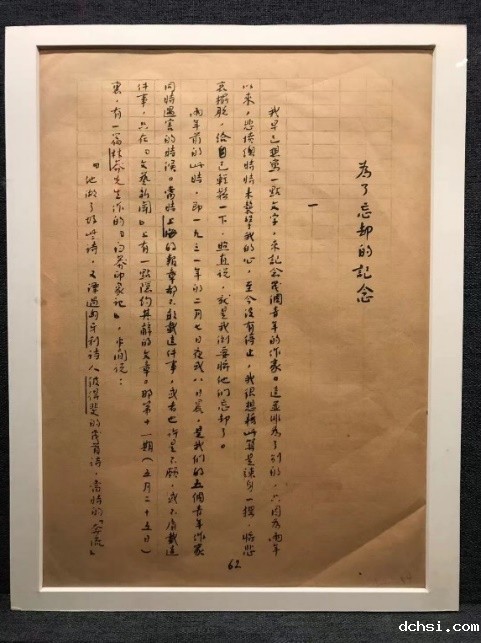 為了忘却的記念
一
我早已想寫一點文字，來記念幾個青年的作家。這並非為了別的，只因為兩年
以來，悲憤總時時來襲擊我的心，至今沒有停止，我很想藉此算是竦身一搖，將悲
哀擺脫，給自己輕鬆一下，照直說，就是我倒要將他們忘却了。
兩年前的此時，即一九三一年的二月七日夜或八日晨，是我們的五個青年作家
同時遇害的時候。當時上海的報章都不敢載這件事，或者也許是不願，或不屑載這
件事，只在「文藝新聞」上有一點隱約其辭的文章。那第十一期（五月二十五日）
裏，有一篇林莽先生作的「白莽印象記」，中間說：
『他做了好些詩，又譯過匈牙利詩人彼得斐的幾首詩，當時的「奔流」
62
dchsi.com